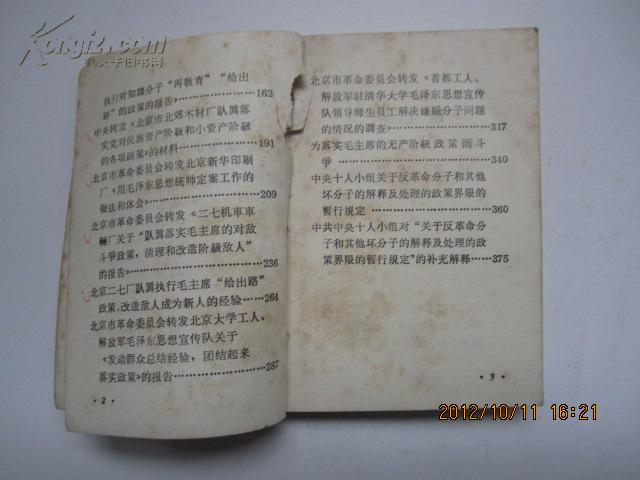 Kongfz.com
孔夫子旧书网
执行对知識分子“再教育”“给出
路”的政策的报告》……162
中央转发《北京市北郊木材厂认真落
实党对民族资产阶級和小资产阶級
的各项政策》的材料……191
北京市革命委员会转发北京新华印刷
厂《用毛泽东思想统帅定案工作的
做法和体会》……209
北京市革命委员会转发《二七机車車
辆厂关于“认真落实毛主席的对敌
斗爭政策，清理和改造阶級敌人”
的报告》……236
北京二七厂认真执行毛主席“给出路”
政策，改造敌人成为新人的经验……264
北京市革命委员会转发北京大学工人、
解放军毛泽东思想宣传队关于
《发动群众总结经验，团结起来
落实政策》的报告……287
·2·
北京市革命委员会转发《首都工人、
解放军驻清华大学毛泽东思想宣传
队领导师生员工解决嫌疑分子问题
的情况的調查》……317
为落实毛主席的无产阶級政策而斗
爭……340
中央十人小組关于反革命分子和其他
坏分子的解释及处理的政策界限的
暫行規定……360
中共中央十人小組对“关于反革命分
子和其他坏分子的解释及处理的政
策界限的暫行規定”的补充解释……375
·3·
2012/10/11 16:21